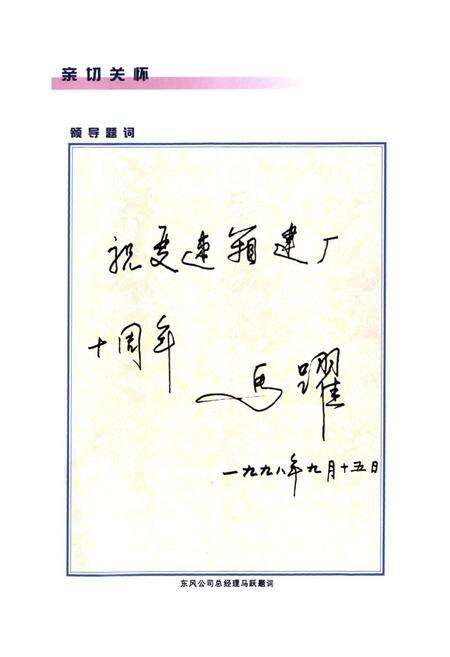 亲切关怀
领导题词
祝变速箱建厂
十周年
马躍
一九九八年九月十五日
东风公司总经理马跃题词